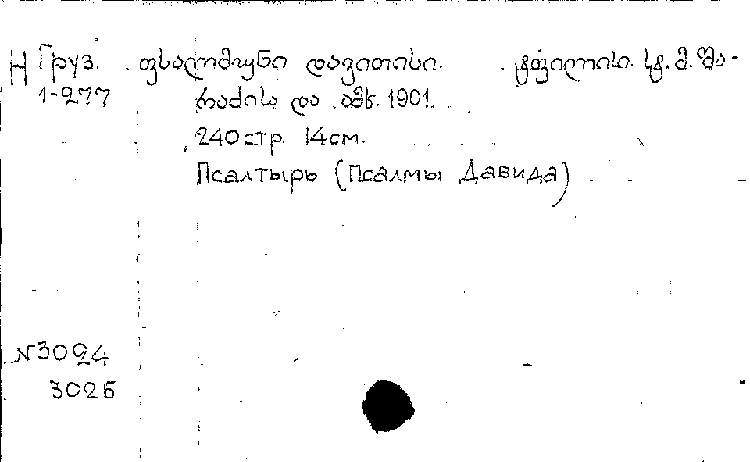 Н Груз. ფსალმუნი დავითისი. ტფილისი. სტ. მ. შა-
1-277 რაძისა და ამხ. 1901.
240 стр. 14 см.
Псалтырь (Псалмы Давида)
N 3024
3026